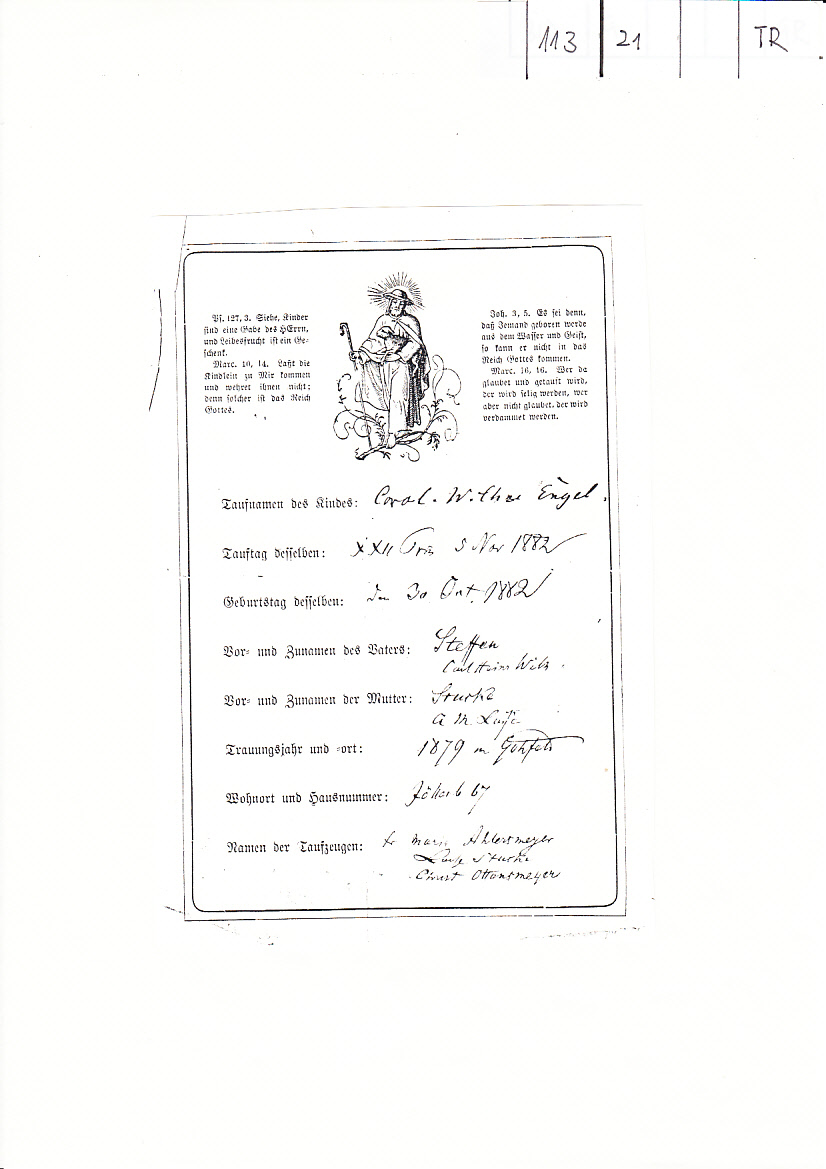 113 21 TR
Ps. 127, 3. Siehe, Kinder
sind eine Gabe des HErrn,
und Leibesfrucht ist ein Ge-
schenk.
Marc. 10, 14. Laßt die
Kindlein zu Mir kommen
und wehret ihnen nicht;
denn solcher ist das Reich
Gottes.
Joh. 3, 5. Es sei denn,
daß Jemand geboren werde
aus dem Wasser und Geist,
so kann er nicht in das
Reich Gottes kommen.
Marc. 16, 16. Wer da
glaubet und getauft wird,
der wird selig werden, wer
aber nicht glaubet, der wird
verdammet werden.
Taufnamen des Kindes: Engel.
Tauftag desselben: XXII Trin 5 Nov 1882
Geburtstag desselben: den 30 Oct. 1882
Vor- und Zunamen des Vaters: Steffen
Carl Heinr Wilh.
Vor- und Zunamen der Mutter: Sturke
A M Luise
Trauungsjahr und -ort: 1879 in Gohfeld
Wohnort und Hausnummer: 67
Namen der Taufzeugen: Marie Ahlersmeyer
Luise Sturke
Christ Ottensmeyer